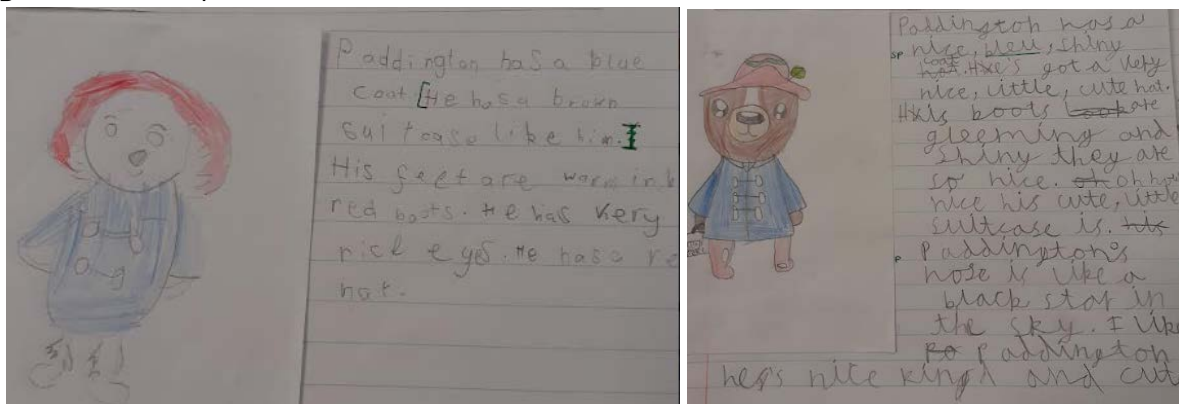 Paddington has a blue
coat. He has a brown
suitcase like him.
His feet are warm in
red boots. He has very
nice eyes. He has a re
hat.
Paddington has a
sp nice, bleu, shiny
coat
hat. He's got a very
nice, little, cute hat.
His boots are
gleeming and
shiny they are
so nice. oh oh how
nice his cute, little
suitcase is. his
p Paddington's
nose is like a
black star in
the sky. I like
Po Paddington
he's nice kind and cute